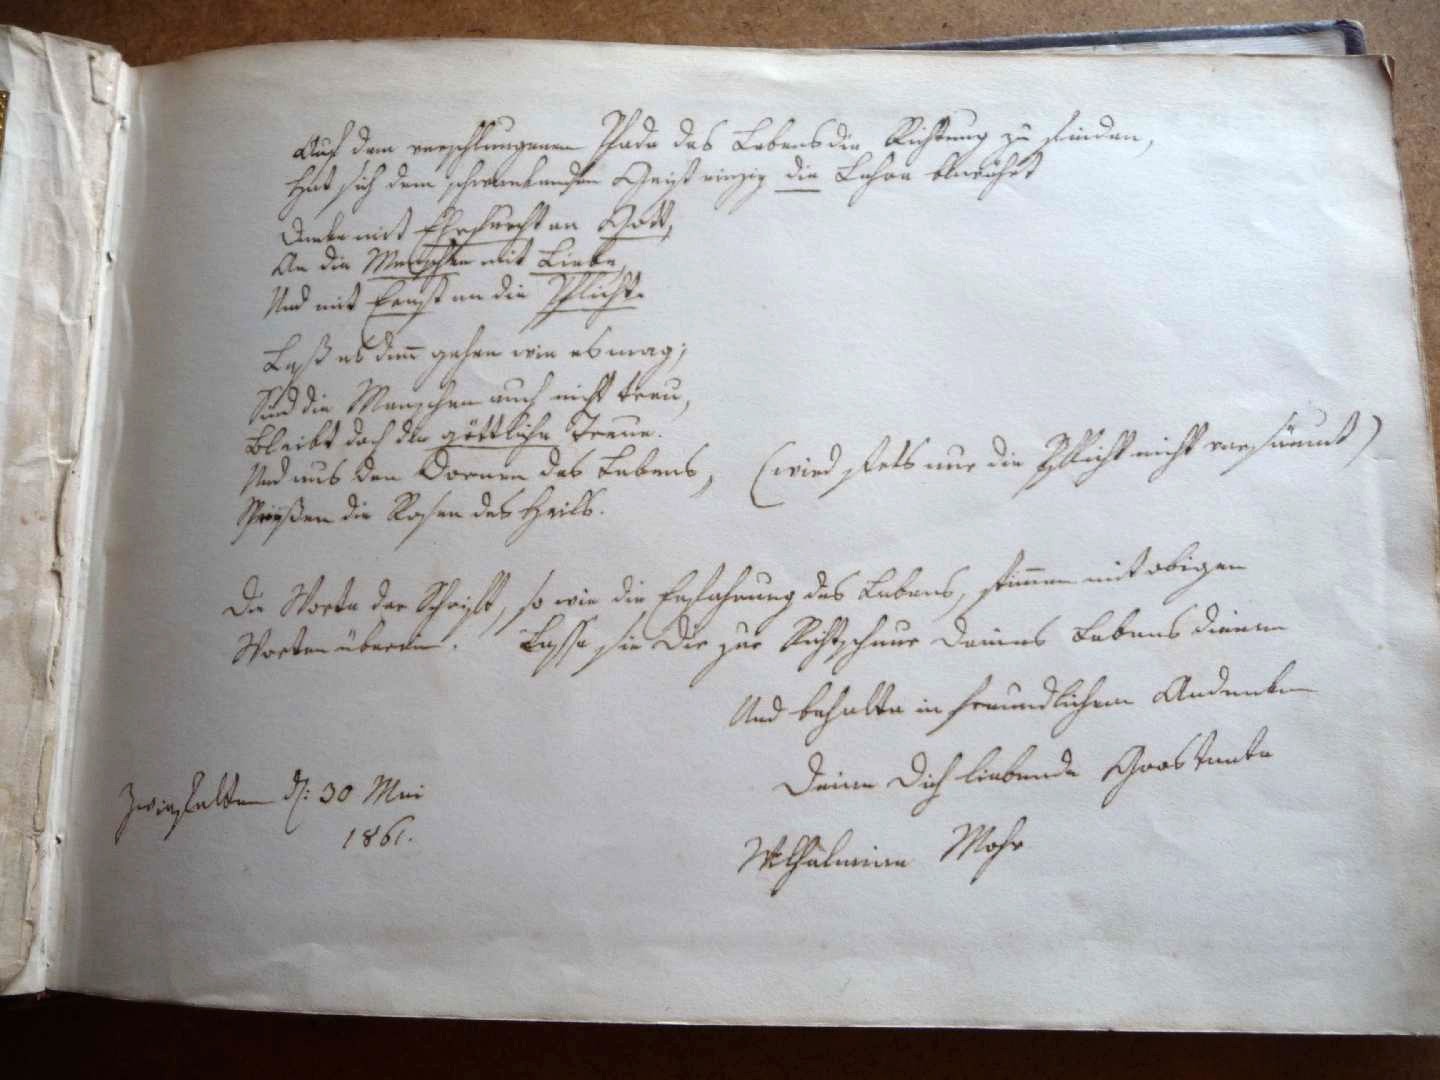 Auf dem verschlungenen Pfade des Lebens die Richtung zu finden,
Hat sich dem schwankenden Geist einzig die Lehre bewährt
Denke mit Ehrfurcht an Gott,
An die Menschen mit Liebe,
Und mit Ernst an die Pflicht.
Laß es dann gehen wie es mag;
Sind die Menschen auch nicht treu,
Bleibt doch die göttliche Treue.
Und aus den Dornen des Lebens, (wird stets nur die Pflicht nicht versäumt)
Sprießen die Rosen des Heils.
Die Worte der Schrift, so wie die Erfahrung des Lebens, stimmen mit obigen
Worten überein. Lasse sie Dir zur Richtschnur Deines Lebens dienen
Und behalte in freundlichem Andenken
Deine Dich liebende Groostante
Wilhelmine Mohr
Zwiefalten d: 30 Mai
1861.